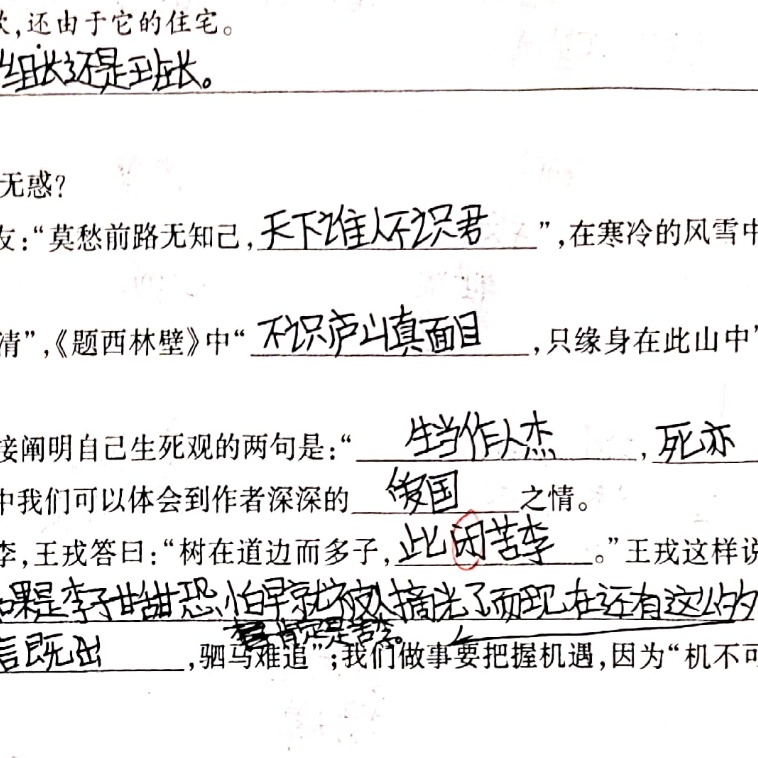 ,还由于它的住宅。
组长还是班长。
无惑?
友:“莫愁前路无知己,天下谁人不识君”,在寒冷的风雪中
清”,《题西林壁》中“不识庐山真面目,只缘身在此山中”
接阐明自己生死观的两句是:“生当作人杰,死亦
中我们可以体会到作者深深的爱国之情。
李,王戎答曰:“树在道边而多子,此必苦李。”王戎这样说
果是李子甜甜恐怕早就被人摘光了而现在还有这么多
肯定是苦李。
言既出,驷马难追”;我们做事要把握机遇,因为“机不可